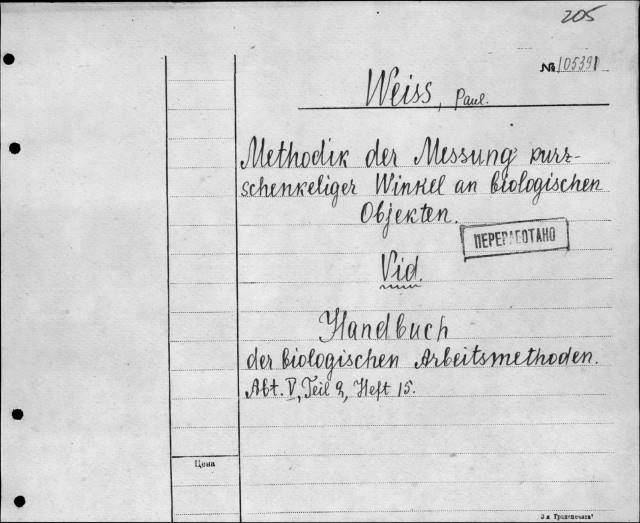 205
№ 105391
Weiss, Paul.
Methodik der Messung kurz-
schenkeliger Winkel an biologischen
Objekten.
ПЕРЕРАБОТАНО
Vid.
Handbuch
der biologischen Arbeitsmethoden.
Abt. V, Teil 2, Heft 15.
Цена